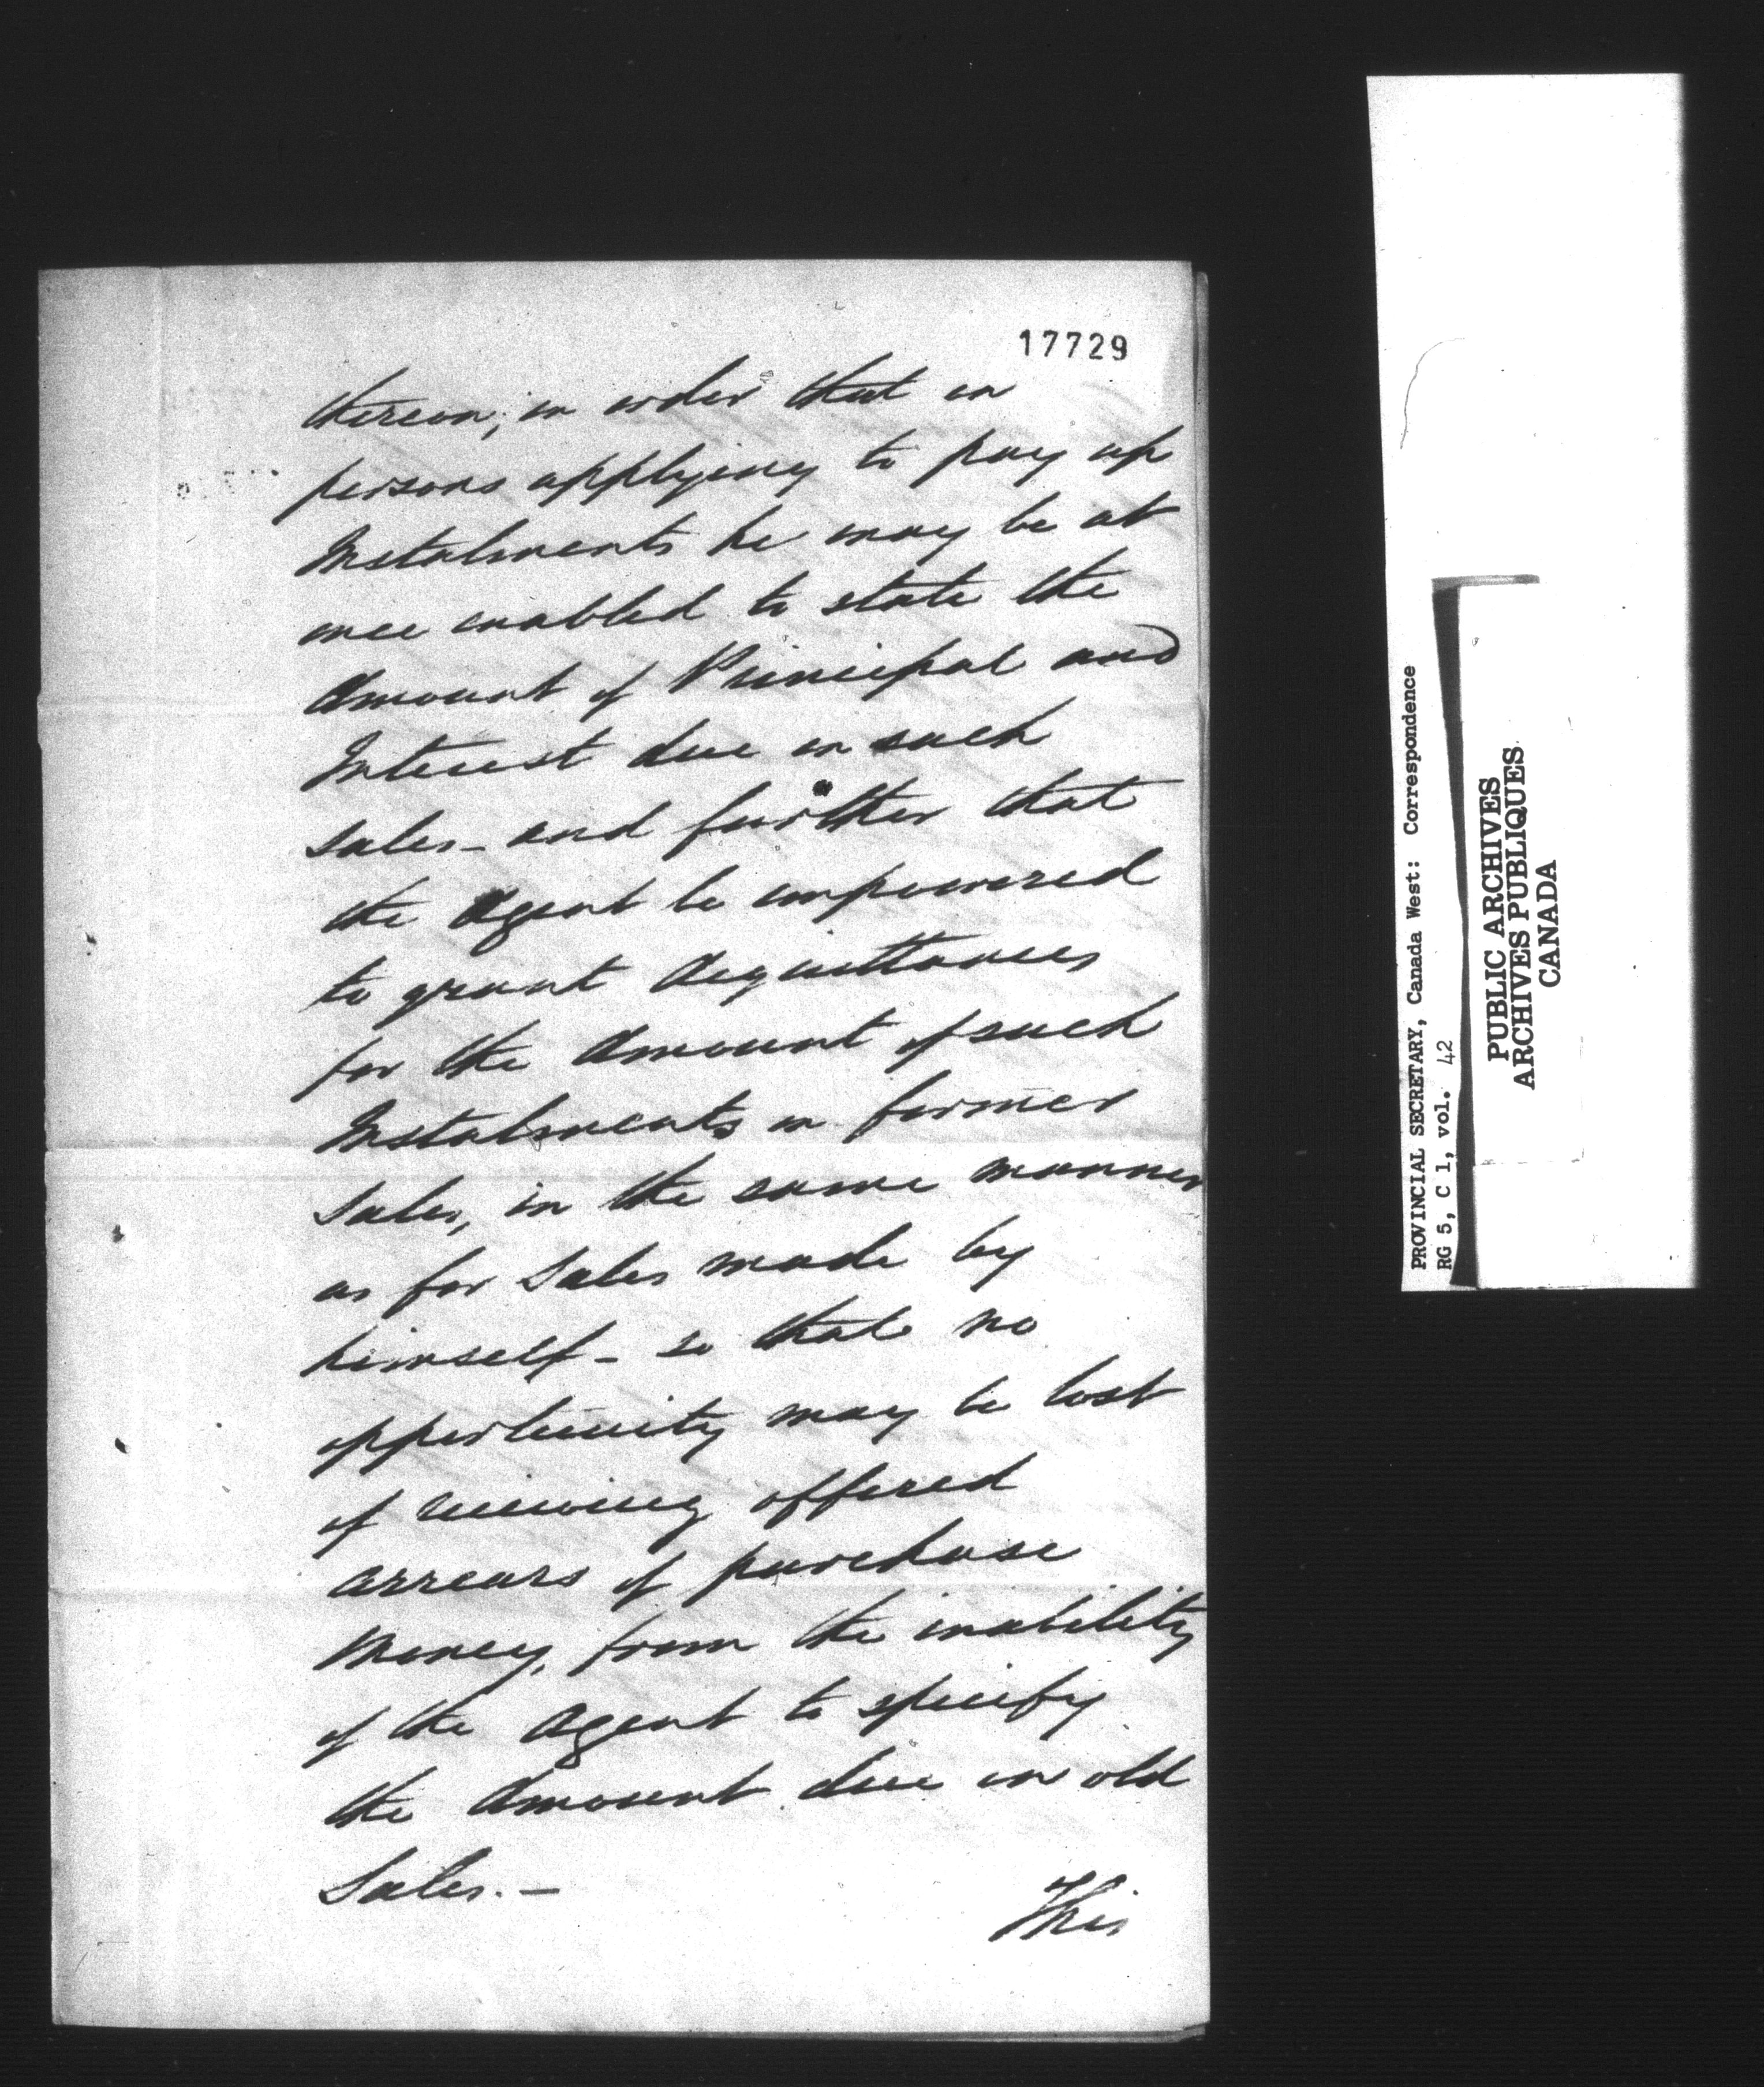 17729
thereon, in order that on
persons applying to pay up
Instalments he may be at
once enabled to state the
Amount of Principal and
Interest due on such
sales - and further that
the Agent be empowered
to grant Acquittances
for the Amount of such
Instalments on former
Sales, in the same manner
as for Sales made by
himself - so that no
opportunity may be lost
of receiving offered
arrears of purchase
Money, from the inability
of the Agent to specify
the Amount due on old
Sales. -
This
PROVINCIAL SECRETARY, Canada West: Correspondence
RG 5, C 1, vol. 42
PUBLIC ARCHIVES
ARCHIVES PUBLIQUES
CANADA